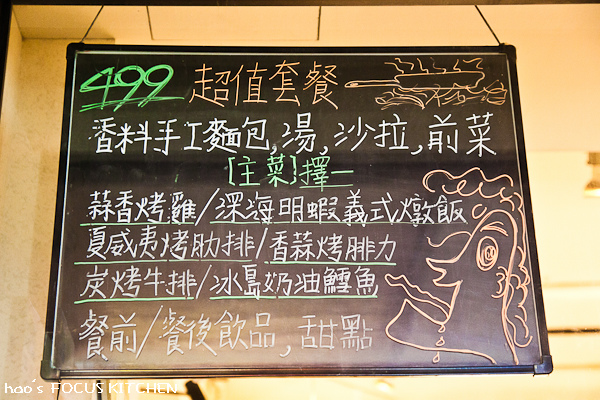 499 超值套餐
香料手工麵包,湯,沙拉,前菜
[主菜]擇一
蒜香烤雞/深海明蝦義式燉飯
夏威夷烤肋排/香蒜烤腓力
炭烤牛排/冰島奶油鱈魚
餐前/餐後飲品,甜點
hao's FOCUS KITCHEN